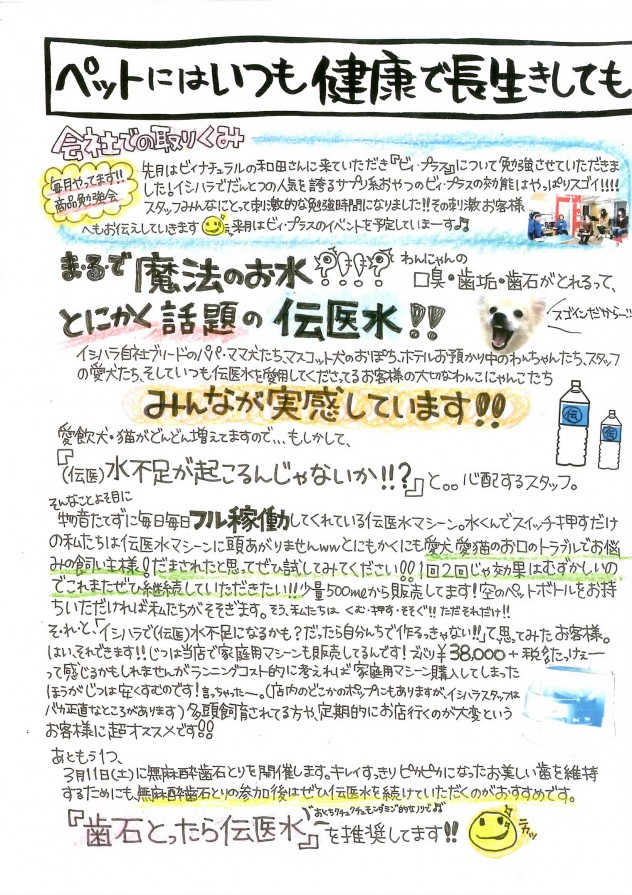 ペットにはいつも健康で長生きしても
会社での取りくみ
毎月やってます!!
商品勉強会
先月はビィナチュラルの和田さんに来ていただき『ビィ・プラス』について勉強させていただきま
した!イシハラでだんとつの人気を誇るサプリ系おやつのビィ・プラスの効能はやっぱりスゴイ!!!!
スタッフみんなにとって刺激的な勉強時間になりました!!その刺激お客様
へもお伝えしていきます
来月はビィ・プラスのイベントを予定していまーす♪
ま・る・で魔法のお水
!?!?!?
わんにゃんの
口臭・歯垢・歯石がとれるって、
とにかく話題の伝医水!!
スゴインだから…!!
イシハラ自社ブリードのパパ・ママ犬たち、マスコット犬のおぽち、ホテルお預かり中のわんちゃんたち、スタッフ
の愛犬たち、そしていつも伝医水を愛用してくださってるお客様の大切なわんこにゃんこたち
みんなが実感しています!!
伝
伝
愛飲犬・猫がどんどん増えてますので…もしかして、
『(伝医)水不足が起こるんじゃないか!!?』と。。心配するスタッフ。
そんなことよそ目に
物音たてずに毎日毎日フル稼働してくれている伝医水マシーン。水くんでスイッチ押すだけ
の私たちは伝医水マシーンに頭あがりませんwwとにもかくにも愛犬愛猫のお口のトラブルでお悩
みの飼い主様!だまされたと思ってぜひ試してみてください!!1回2回じゃ効果はむずかしいの
でこれまたぜひ継続していただきたい!!少量500mlから販売してます!空のペットボトルをお持
ちいただければ私たちがそそぎます。そう、私たちは くむ・押す・そそぐ!! ただそれだけ!!
そ・れ・と、「イシハラで(伝医)水不足になるかも?だったら自分んちで作るっきゃない!!」て思ってみたお客様。
はい、それできます!!じつは当店で家庭用マシーンも販売してるんです!ズバリ¥38,000+税。たっけぇー
って感じるかもしれませんがランニングコスト的に考えれば家庭用マシーン購入してしまった
ほうがじつは安くすむのです!言っちゃたー。(店内のどこかのポップにもありますが、イシハラスタッフは
バカ正直なところがあります)多頭飼育されてる方や、定期的にお店行くのが大変という
お客様に超オススメです!!
あともう1つ、
3月11日(土)に無麻酔歯石とりを開催します。キレイすっきりピカピカになったお美しい歯を維持
するためにも、無麻酔歯石とりの参加後はぜひ伝医水を続けていただくのがおすすめです。
おくちクチュクチュモンダミン的なノリで♪
『歯石とったら伝医水』を推奨してます!!
テカッ